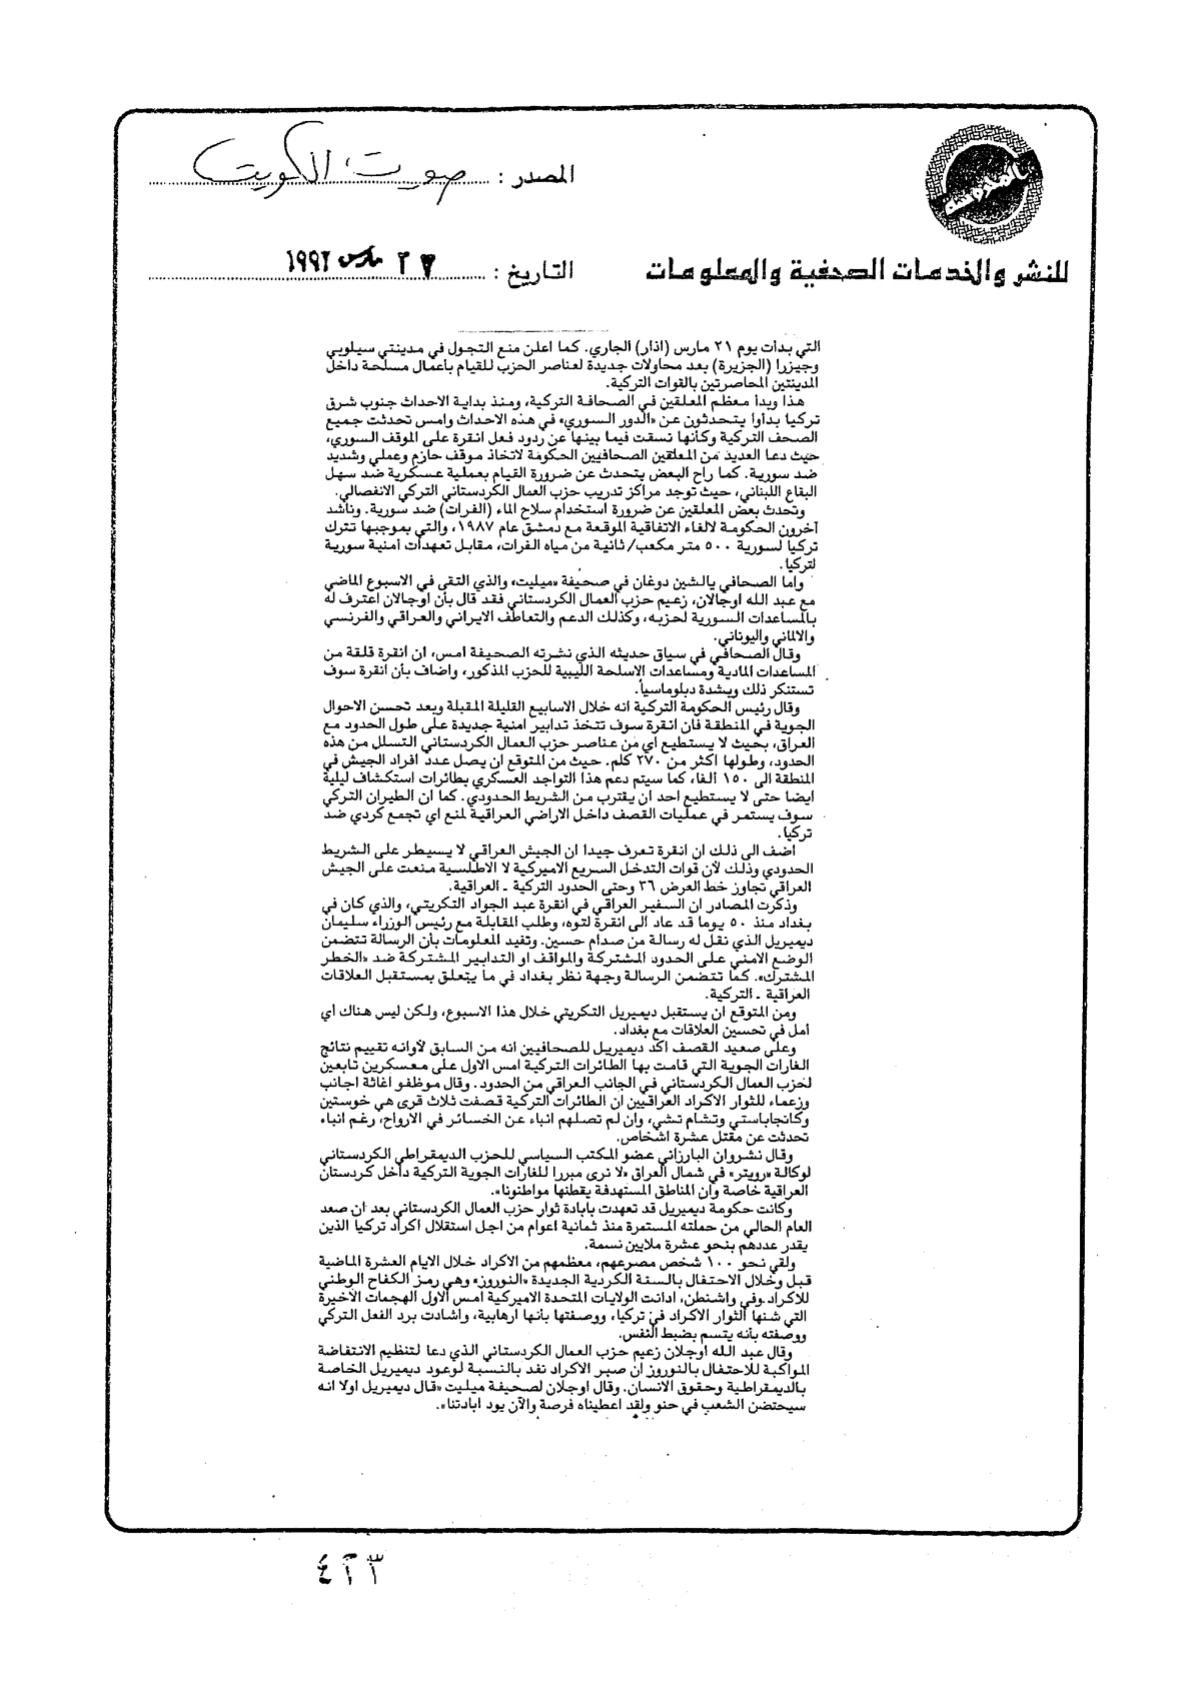 المصدر : صوت الكويت
للنشر والخدمات الصحفية والمعلومات
التاريخ : مارس ١٩٩٢
التي بدات يوم ٢١ مارس (اذار) الجاري. كما اعلن منع التجول في مدينتي سيلوبي
وجيزرا (الجزيرة) بعد محاولات جديدة لعناصر الحزب للقيام باعمال مسلحة داخل
المدينتين المحاصرتين بالقوات التركية.
هذا وبدا معظم المعلقين في الصحافة التركية، ومنذ بداية الاحداث جنوب شرق
تركيا بداوا يتحدثون عن «الدور السوري» في هذه الاحداث وامس تحدثت جميع
الصحف التركية وكأنها نسقت فيما بينها عن ردود فعل انقرة على الموقف السوري،
حيث دعا العديد من المعلقين الصحافيين الحكومة لاتخاذ موقف حازم وعملي وشديد
ضد سورية. كما راح البعض يتحدث عن ضرورة القيام بعملية عسكرية ضد سهل
البقاع اللبناني، حيث توجد مراكز تدريب حزب العمال الكردستاني التركي الانفصالي.
وتحدث بعض المعلقين عن ضرورة استخدام سلاح الماء (الفرات) ضد سورية. وناشد
آخرون الحكومة لالغاء الاتفاقية الموقعة مع دمشق عام ١٩٨٧، والتي بموجبها تترك
تركيا لسورية ٥٠٠ متر مكعب/ ثانية من مياه الفرات، مقابل تعهدات امنية سورية
لتركيا.
واما الصحافي يالشين دوغان في صحيفة «ميليت» والذي التقى في الاسبوع الماضي
مع عبد الله اوجالان، زعيم حزب العمال الكردستاني فقد قال بأن اوجالان اعترف له
بالمساعدات السورية لحزبه، وكذلك الدعم والتعاطف الايراني والعراقي والفرنسي
والالماني واليوناني.
وقال الصحافي في سياق حديثه الذي نشرته الصحيفة امس، ان انقرة قلقة من
المساعدات المادية ومساعدات الاسلحة الليبية للحزب المذكور، واضاف بأن انقرة سوف
تستنكر ذلك وبشدة دبلوماسياً.
وقال رئيس الحكومة التركية انه خلال الاسابيع القليلة المقبلة وبعد تحسن الاحوال
الجوية في المنطقة فأن انقرة سوف تتخذ تدابير امنية جديدة على طول الحدود مع
العراق، بحيث لا يستطيع اي من عناصر حزب العمال الكردستاني التسلل من هذه
الحدود، وطولها اكثر من ٢٧٠ كلم. حيث من المتوقع ان يصل عدد افراد الجيش في
المنطقة الى ١٥٠ الفا، كما سيتم دعم هذا التواجد العسكري بطائرات استكشاف ليلية
ايضا حتى لا يستطيع احد ان يقترب من الشريط الحدودي. كما ان الطيران التركي
سوف يستمر في عمليات القصف داخل الاراضي العراقية لمنع اي تجمع كردي ضد
تركيا.
اضف الى ذلك ان انقرة تعرف جيدا ان الجيش العراقي لا يسيطر على الشريط
الحدودي وذلك لأن قوات التدخل السريع الاميركية لا الاطلسية منعت على الجيش
العراقي تجاوز خط العرض ٣٦ وحتى الحدود التركية ـ العراقية.
وذكرت المصادر ان السفير العراقي في انقرة عبد الجواد التكريتي، والذي كان في
بغداد منذ ٥٠ يوما قد عاد الى انقرة لتوه، وطلب المقابلة مع رئيس الوزراء سليمان
ديميريل الذي نقل له رسالة من صدام حسين. وتفيد المعلومات بأن الرسالة تتضمن
الوضع الامني على الحدود المشتركة والمواقف او التدابير المشتركة ضد «الخطر
المشترك». كما تتضمن الرسالة وجهة نظر بغداد في ما يتعلق بمستقبل العلاقات
العراقية ـ التركية.
ومن المتوقع ان يستقبل ديميريل التكريتي خلال هذا الاسبوع، ولكن ليس هناك اي
أمل في تحسين العلاقات مع بغداد.
وعلى صعيد القصف اكد ديميريل للصحافيين انه من السابق لأوانه تقييم نتائج
الغارات الجوية التي قامت بها الطائرات التركية امس الاول على معسكرين تابعين
لحزب العمال الكردستاني في الجانب العراقي من الحدود. وقال موظفو اغاثة اجانب
وزعماء للثوار الاكراد العراقيين ان الطائرات التركية قصفت ثلاث قرى هي خوستين
وكانجاباستي وتشام تشي، وان لم تصلهم انباء عن الخسائر في الارواح، رغم انباء
تحدثت عن مقتل عشرة اشخاص.
وقال نشروان البارزاني عضو المكتب السياسي للحزب الديمقراطي الكردستاني
لوكالة «رويتر» في شمال العراق «لا نرى مبررا للغارات الجوية التركية داخل كردستان
العراقية خاصة وأن المناطق المستهدفة يقطنها مواطنونا».
وكانت حكومة ديميريل قد تعهدت بابادة ثوار حزب العمال الكردستاني بعد ان صعد
العام الحالي من حملته المستمرة منذ ثمانية اعوام من اجل استقلال اكراد تركيا الذين
يقدر عددهم بنحو عشرة ملايين نسمة.
ولقي نحو ١٠٠ شخص مصرعهم، معظمهم من الاكراد خلال الايام العشرة الماضية
قبل وخلال الاحتفال بالسنة الكردية الجديدة «النوروز» وهي رمز الكفاح الوطني
للاكراد.وفي واشنطن، ادانت الولايات المتحدة الاميركية امس الاول الهجمات الاخيرة
التي شنها الثوار الاكراد في تركيا، ووصفتها بأنها ارهابية، واشادت برد الفعل التركي
ووصفته بأنه يتسم بضبط النفس.
وقال عبد الله اوجلان زعيم حزب العمال الكردستاني الذي دعا لتنظيم الانتفاضة
المواكبة للاحتفال بالنوروز ان صبر الاكراد نفد بالنسبة لوعود ديميريل الخاصة
بالديمقراطية وحقوق الانسان. وقال اوجلان لصحيفة ميليت «قال ديميريل اولا انه
سيحتضن الشعب في حنو ولقد اعطيناه فرصة والآن يود ابادتنا».
٤٢٣